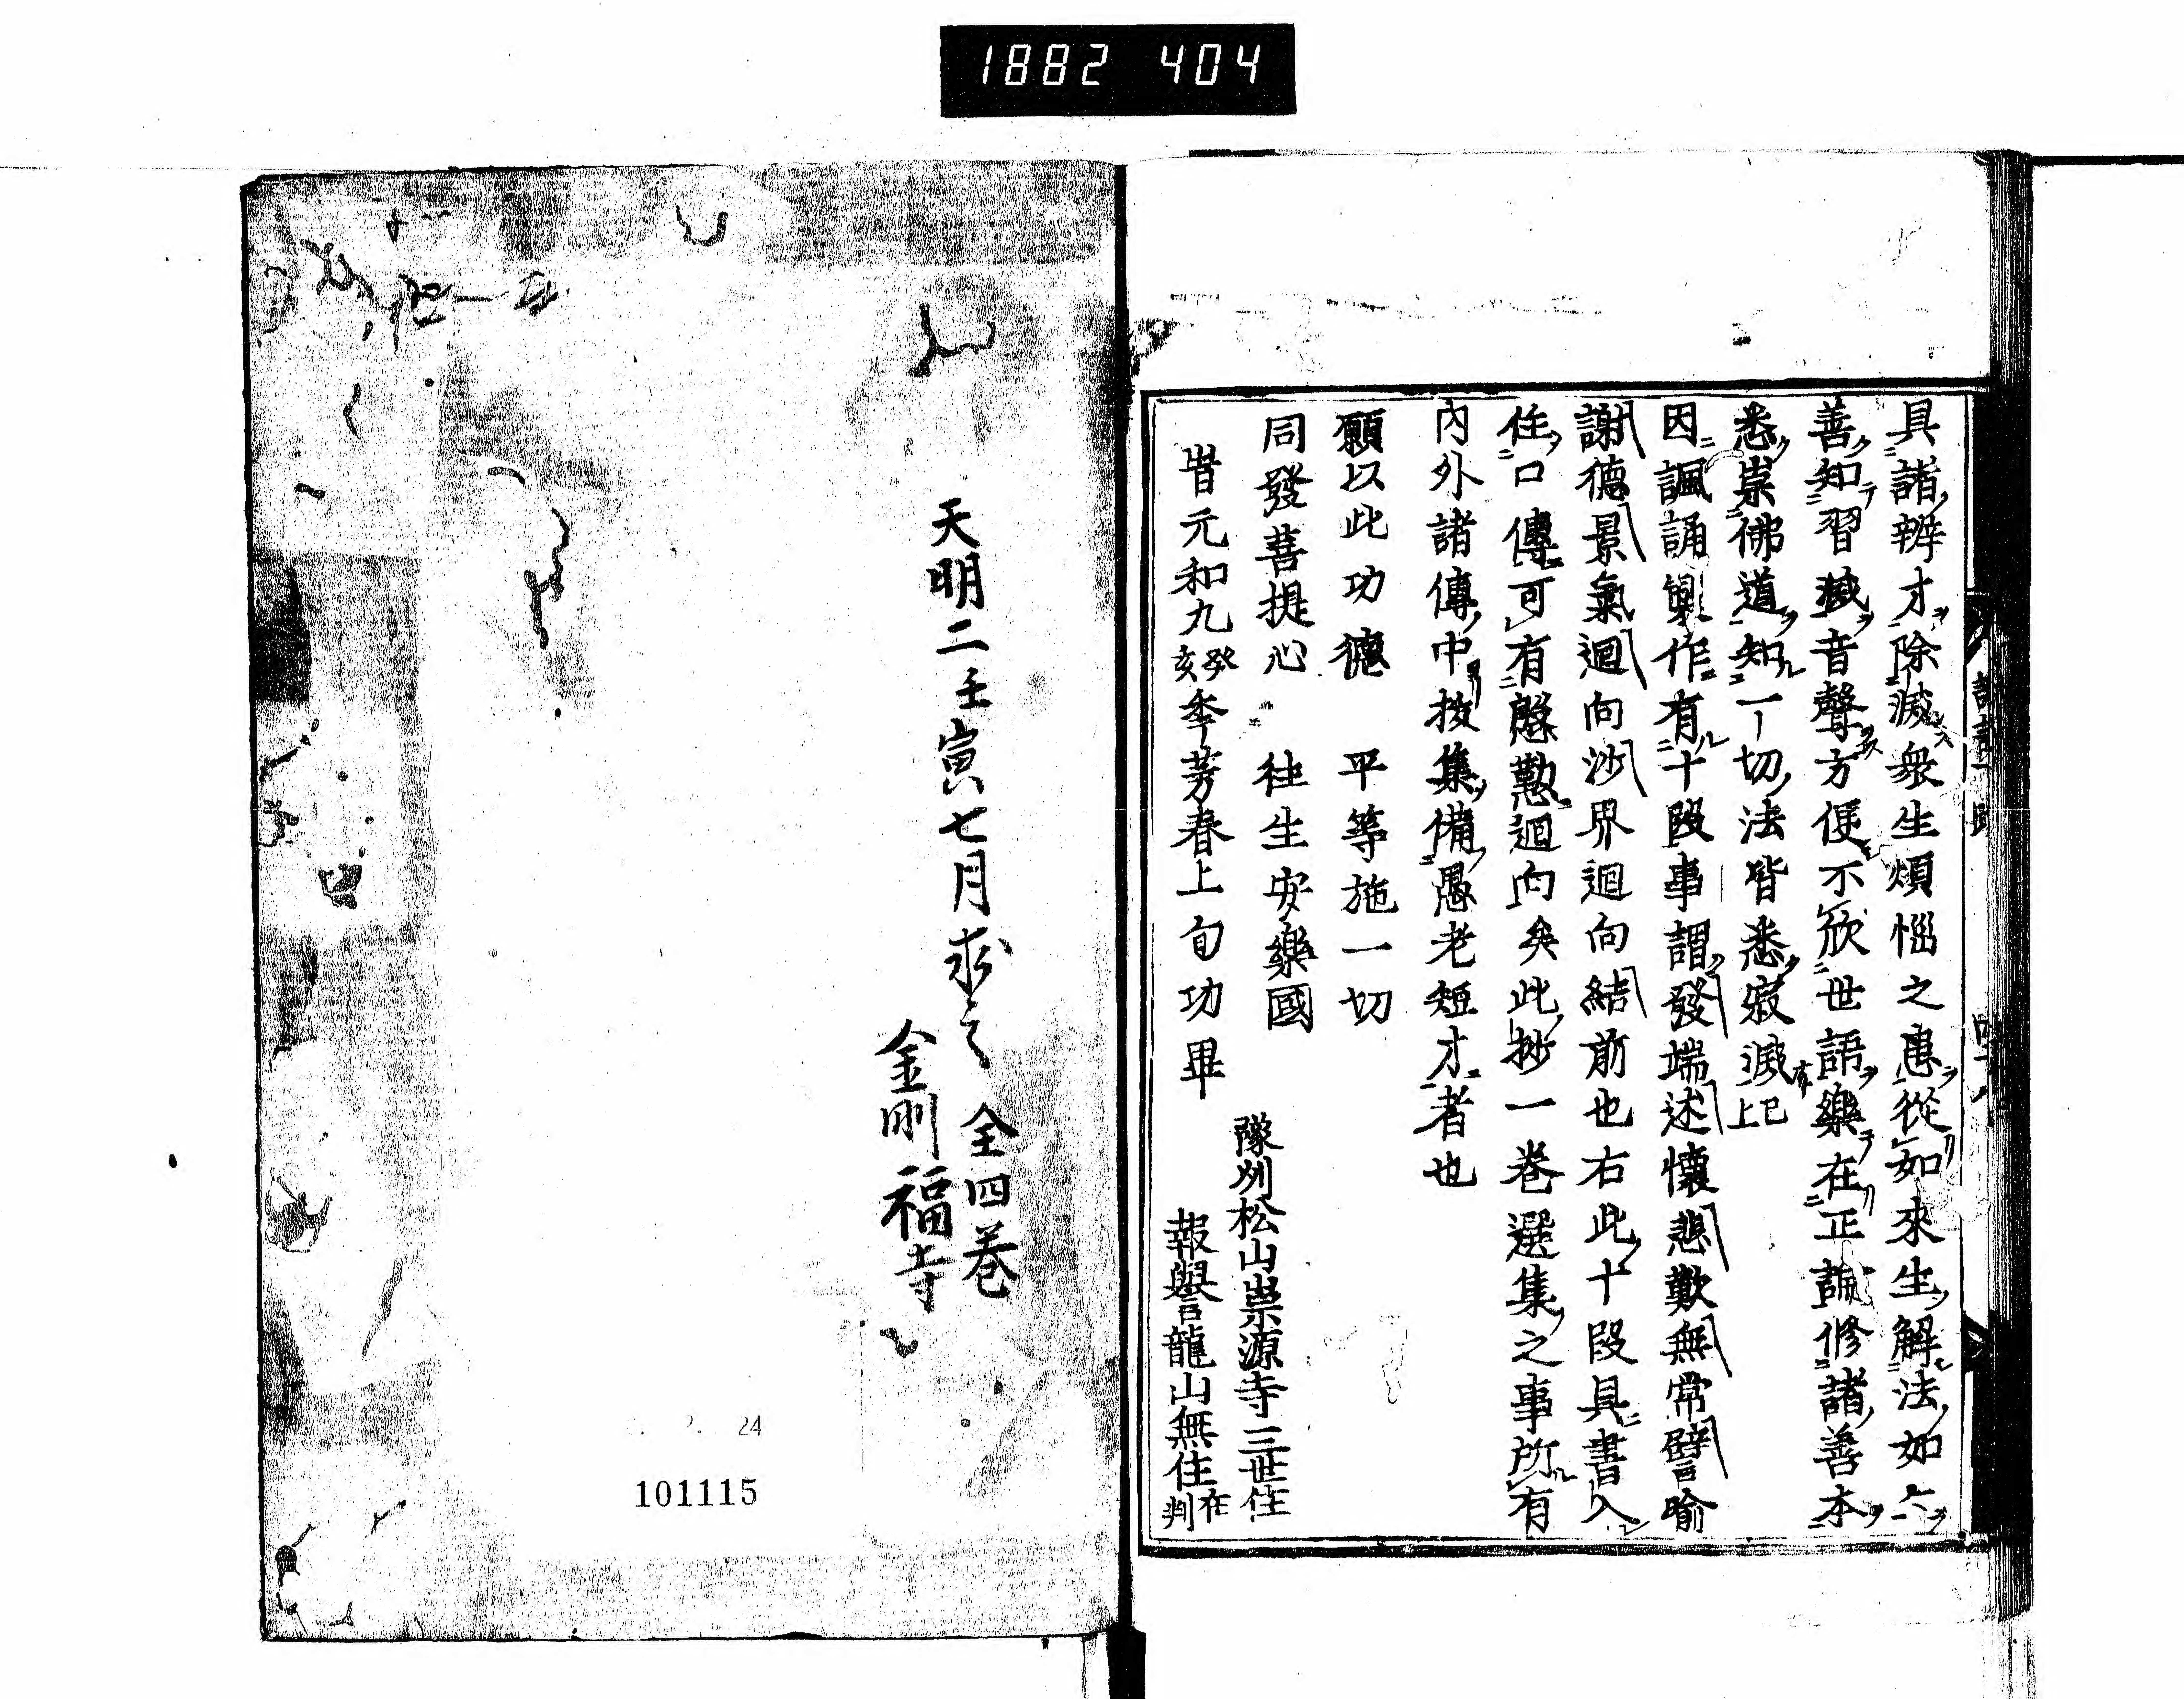 1882 404
具詣辨才除滅衆生煩惱之患從如來生解法如々
善知習滅音聲方便不欣世語樂在正論修諸善本
悉崇佛道知一切法皆悉寂滅已上
因諷誦製作有十段事謂發端述懷悲歎無常譬喻
謝德景氣迴向沙界迴向結前也右此十段具書入
住口傳可有慇懃迴向矣此抄一卷選集之事所有
內外諸傳中按集備愚老短才者也
願以此功德 平等施一切
同發菩提心 往生安樂國
豫州松山崇源寺三世住
旹元和九癸亥季芳春上旬功畢
報譽龍山無住在判
天明二壬寅七月求之 全四巻
金剛福寺
24
101115